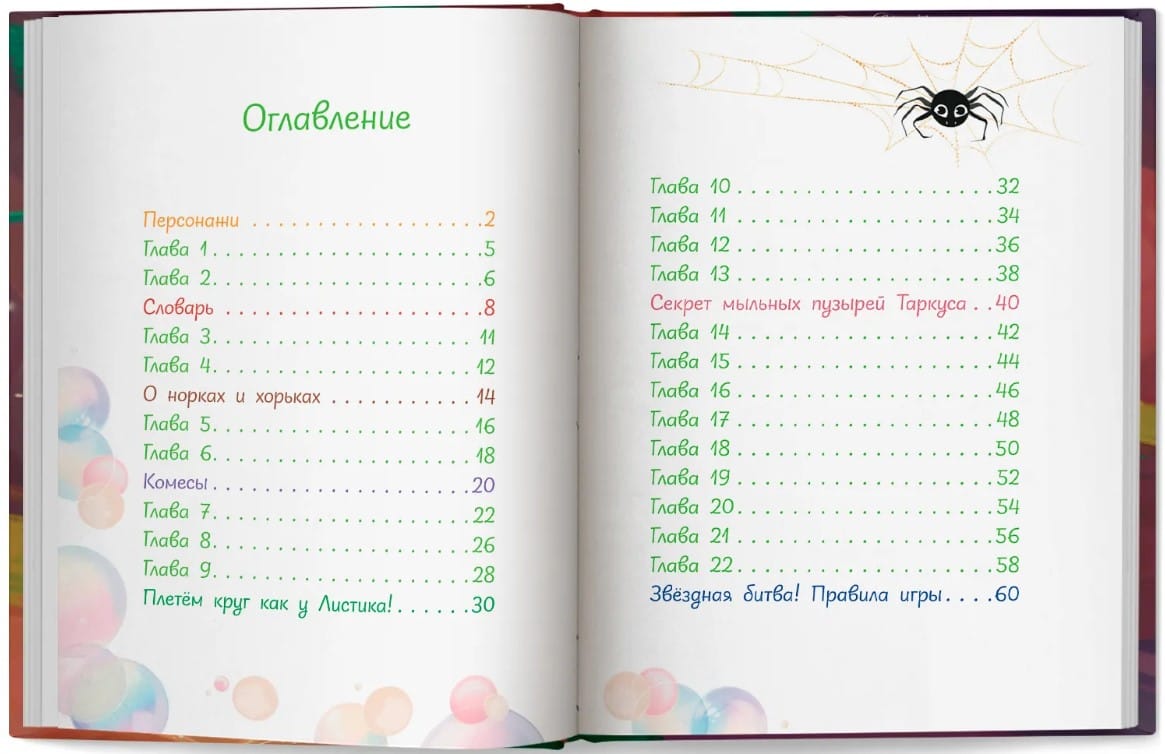 Оглавление
Персонажи . . . . . . . . . . . . . . . . . . . 2
Глава 1 . . . . . . . . . . . . . . . . . . . . . 5
Глава 2 . . . . . . . . . . . . . . . . . . . . . 6
Словарь . . . . . . . . . . . . . . . . . . . . 8
Глава 3 . . . . . . . . . . . . . . . . . . . . 11
Глава 4 . . . . . . . . . . . . . . . . . . . . 12
О норках и хорьках . . . . . . . . . . . 14
Глава 5 . . . . . . . . . . . . . . . . . . . . 16
Глава 6 . . . . . . . . . . . . . . . . . . . . 18
Комесы . . . . . . . . . . . . . . . . . . . . 20
Глава 7 . . . . . . . . . . . . . . . . . . . . 22
Глава 8 . . . . . . . . . . . . . . . . . . . . 26
Глава 9 . . . . . . . . . . . . . . . . . . . . 28
Плетём круг как у Листика! . . . . . . 30
Глава 10 . . . . . . . . . . . . . . . . . . . 32
Глава 11 . . . . . . . . . . . . . . . . . . . 34
Глава 12 . . . . . . . . . . . . . . . . . . . 36
Глава 13 . . . . . . . . . . . . . . . . . . . 38
Секрет мыльных пузырей Таркуса . . 40
Глава 14 . . . . . . . . . . . . . . . . . . . 42
Глава 15 . . . . . . . . . . . . . . . . . . . 44
Глава 16 . . . . . . . . . . . . . . . . . . . 46
Глава 17 . . . . . . . . . . . . . . . . . . . 48
Глава 18 . . . . . . . . . . . . . . . . . . . 50
Глава 19 . . . . . . . . . . . . . . . . . . . 52
Глава 20 . . . . . . . . . . . . . . . . . . . 54
Глава 21 . . . . . . . . . . . . . . . . . . . 56
Глава 22 . . . . . . . . . . . . . . . . . . . 58
Звёздная битва! Правила игры . . . . 60